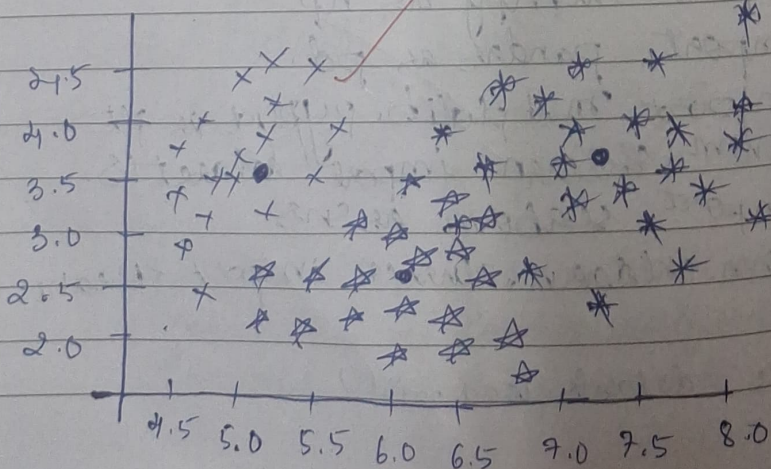 4.5
4.0
3.5
3.0
2.5
2.0
4.5 5.0 5.5 6.0 6.5 7.0 7.5 8.0